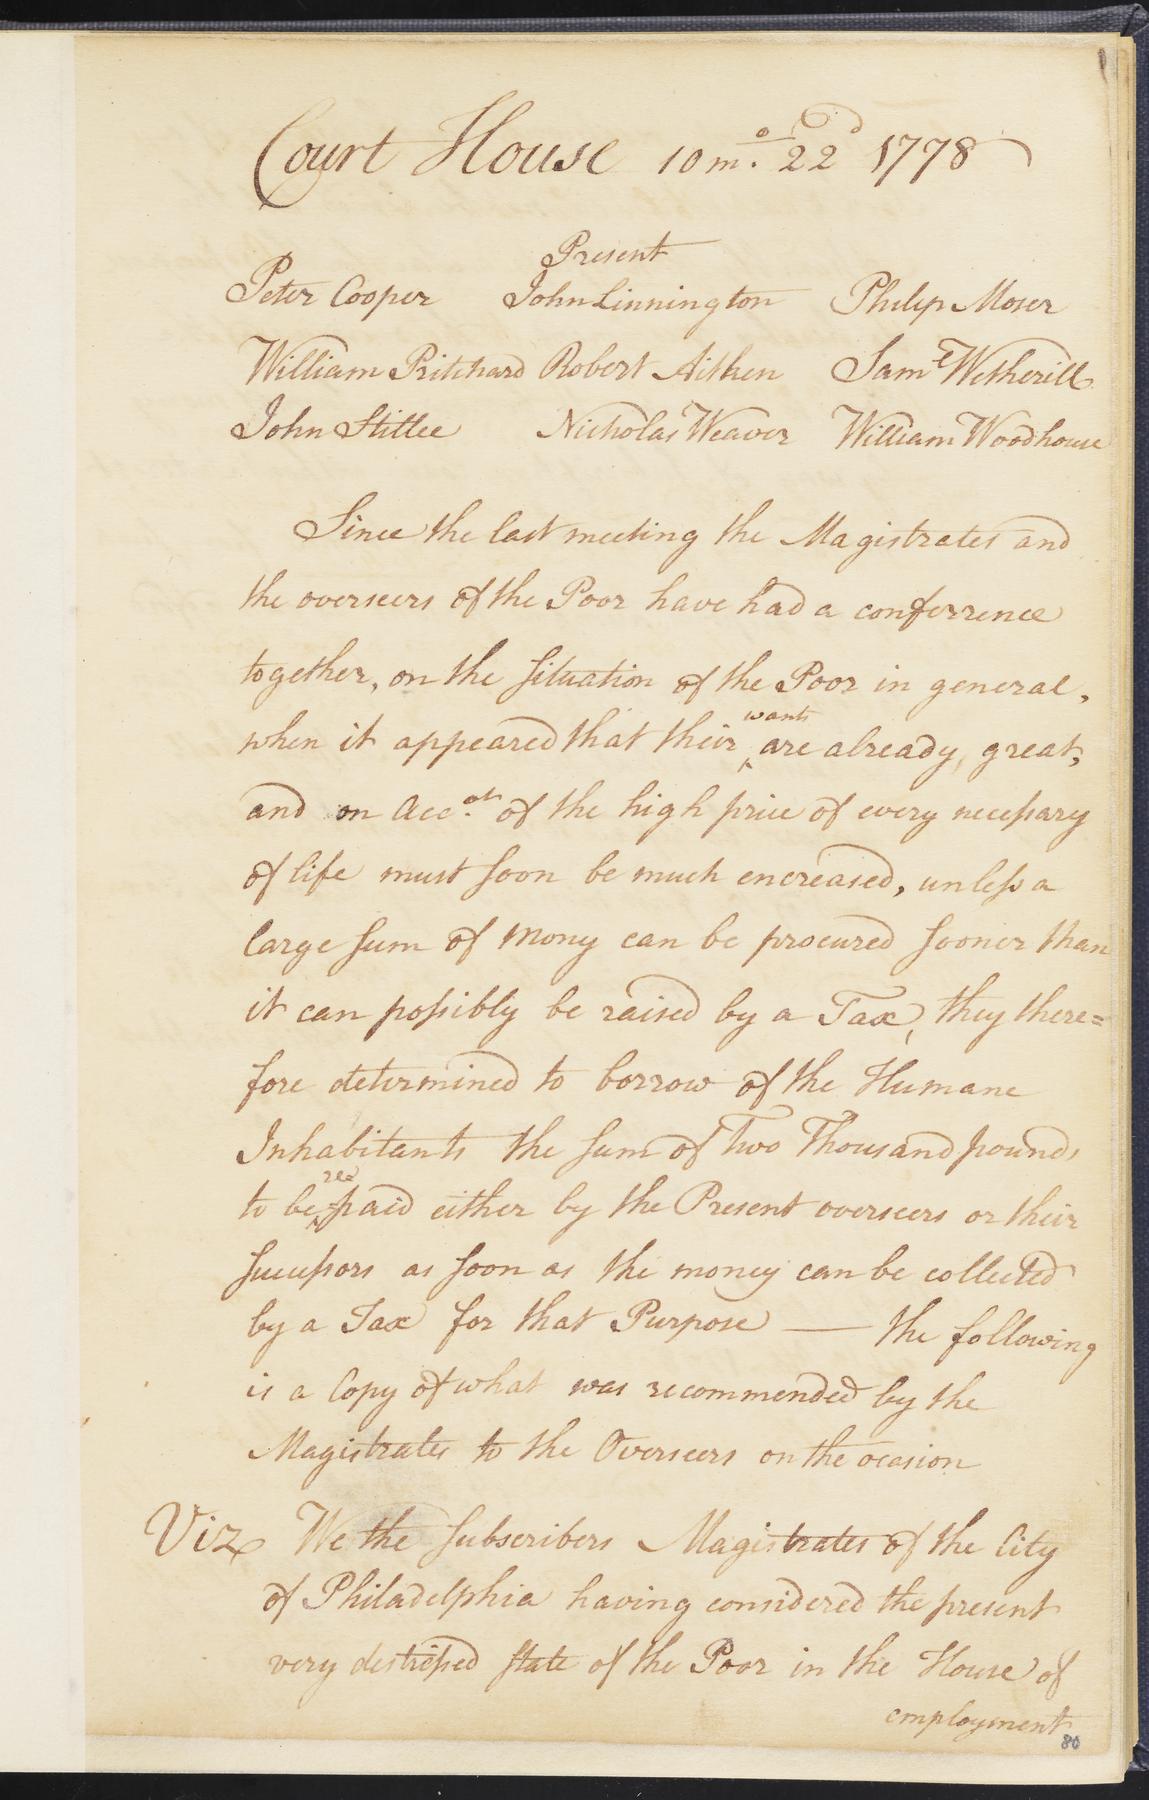 Court House 10 mo. 22d 1778
Present
Peter Cooper John Linnington Philip Moser
William Pritchard Robert Aitken Saml Wetherill
John Stillee Nicholas Weaver William Woodhouse
Since the last meeting the Magistrates and
the overseers of the Poor have had a conferrence
together, on the situation of the Poor in general,
when it appeared that their wants are already, great,
and on Accot. of the high price of every necessary
of life must soon be much encreased, unless a
large sum of mony can be procured sooner than
it can possibly be raised by a Tax, they there=
fore determined to borrow of the Humane
Inhabitants the sum of Two Thousand pounds
to be repaid either by the Present overseers or their
sucessors as soon as the money can be collected
by a Tax for that Purpose — the following
is a Copy of what was recommended by the
Magistrates to the Overseers on the ocasion
Viz We the subscribers Magistrates of the City
of Philadelphia having considered the present
very destressed state of the Poor in the House of
employment
80